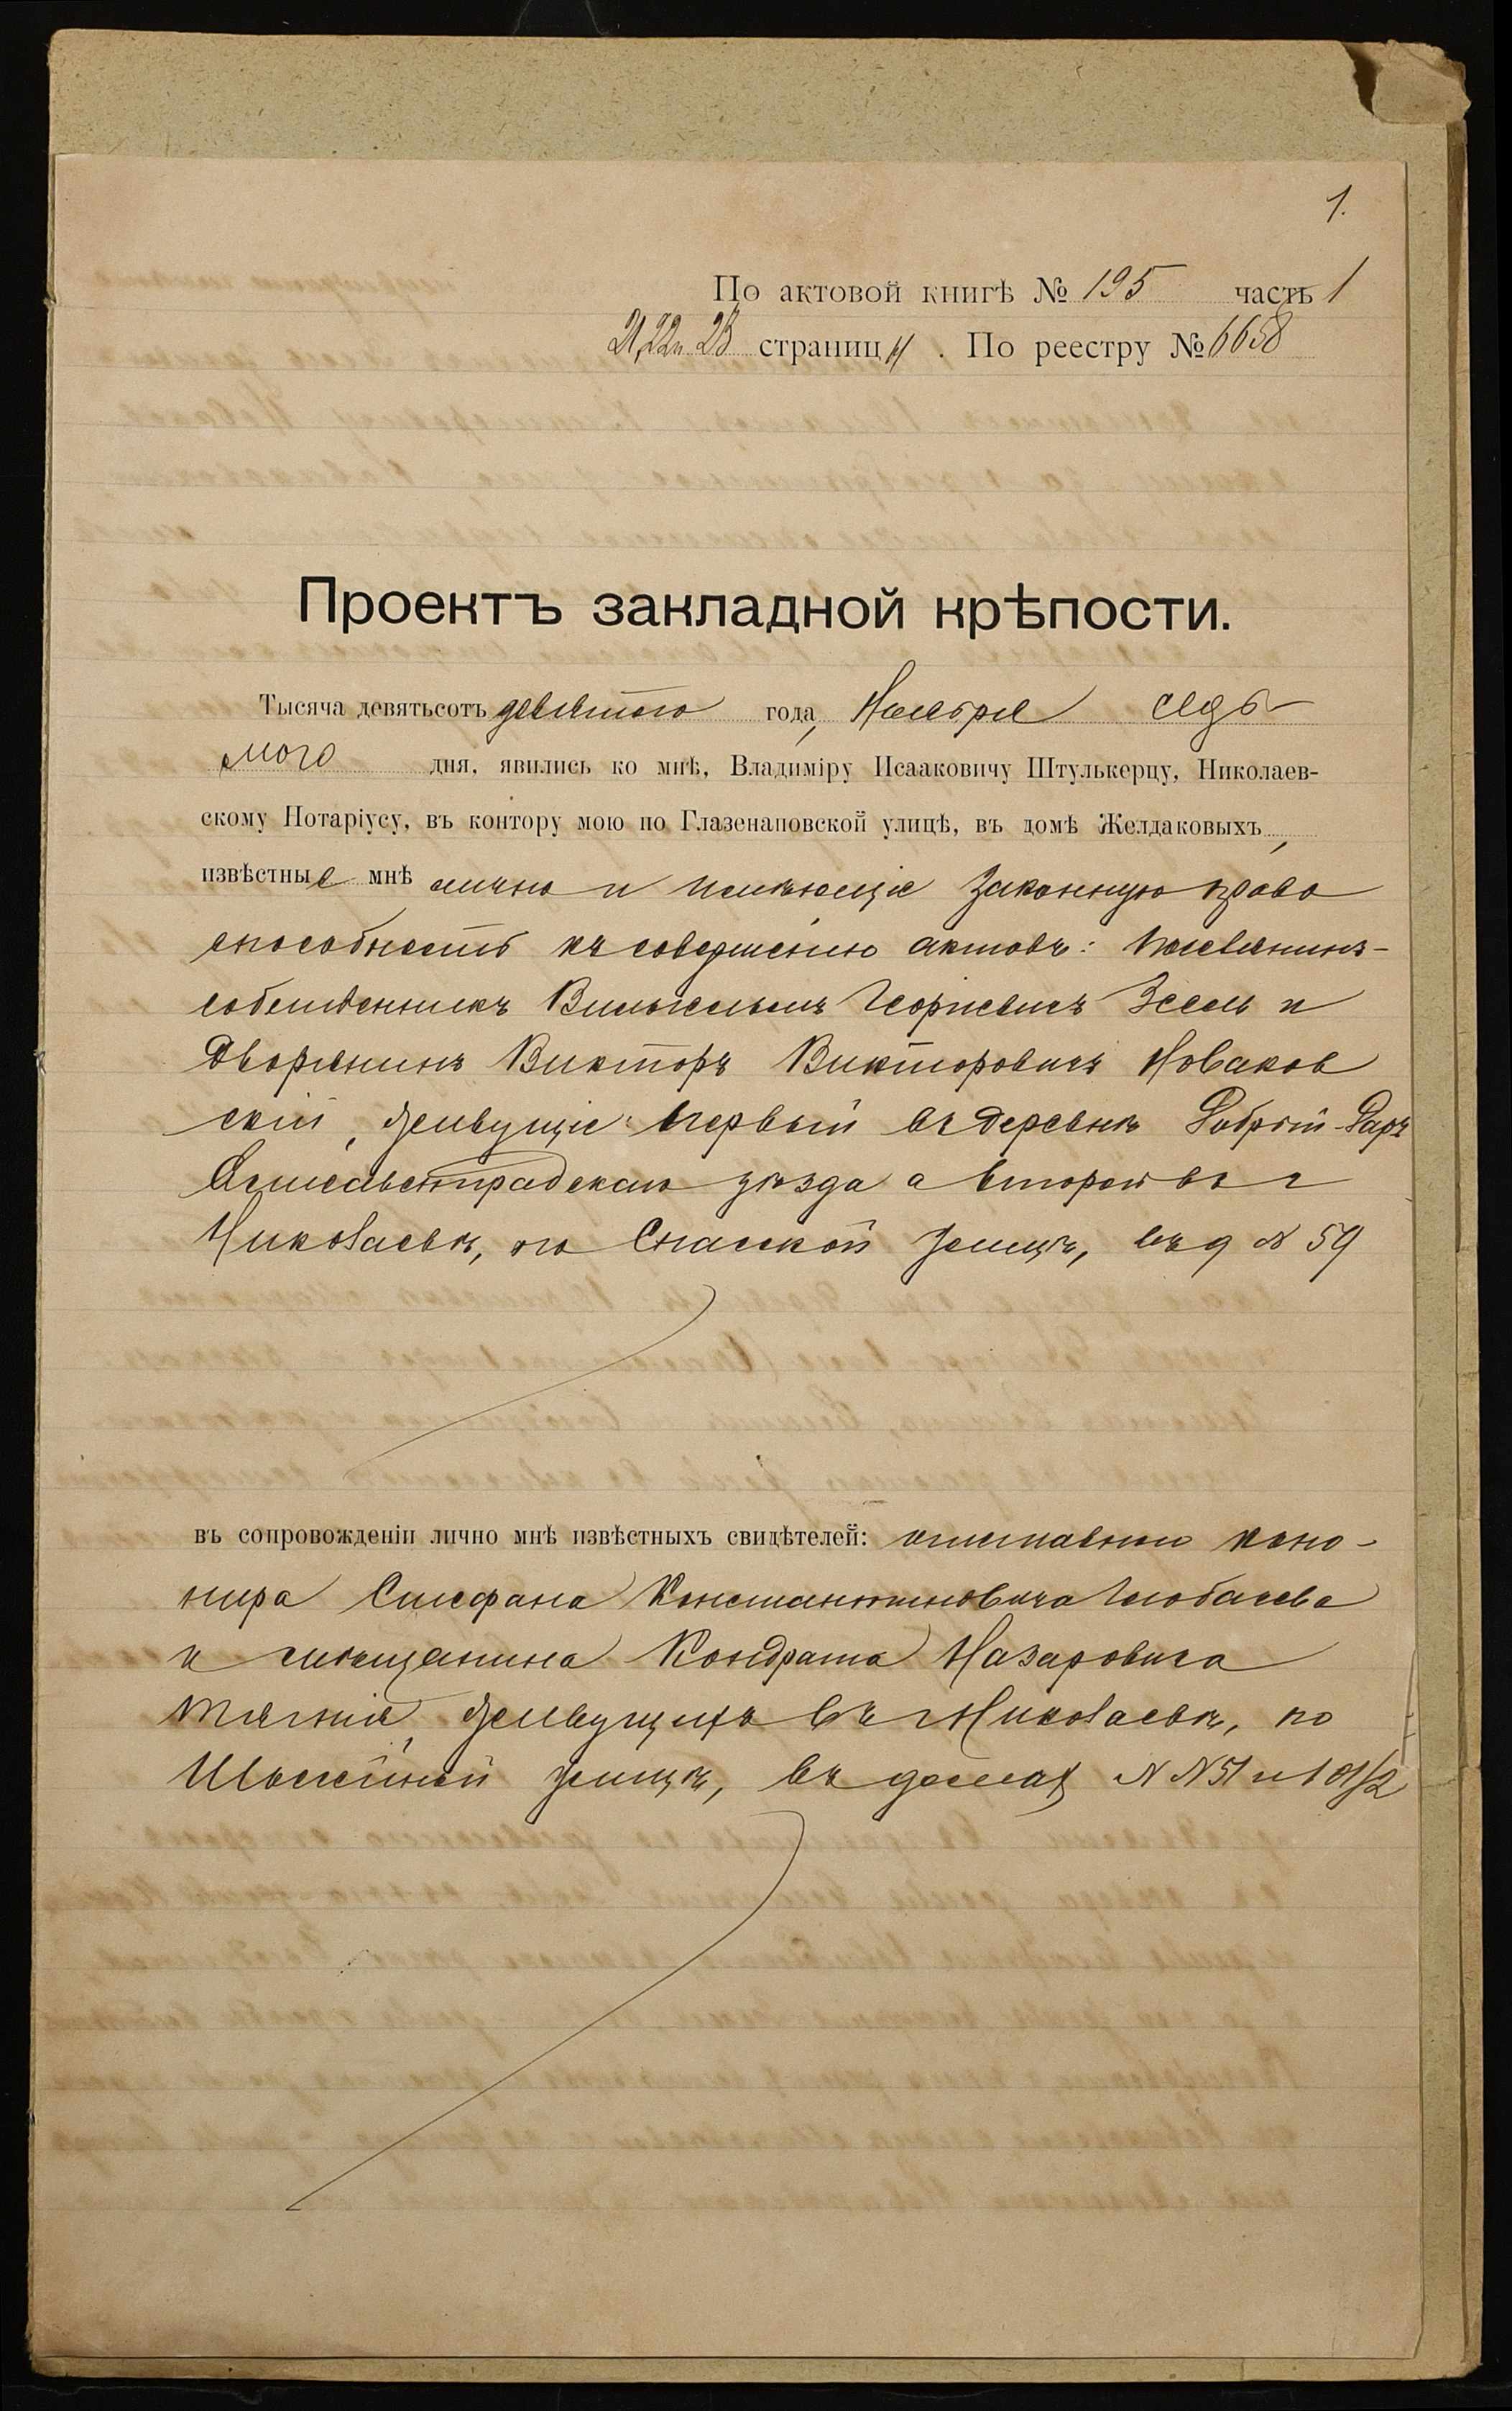 1.
По актовой книгѣ № 195 часть 1
21, 22 и 23 страницы. По реестру № 6658
Проектъ закладной крѣпости.
Тысяча девятьсотъ девятого года, Ноября седь-
мого дня, явились ко мнѣ, Владиміру Исааковичу Штулькерцу, Николаев-
скому Нотаріусу, въ контору мою по Глазенаповской улицѣ, въ домѣ Желдаковыхъ,
извѣстные мнѣ лично и имѣющіе законную право
способность къ совершенію актовъ: поселянинъ-
собственникъ Вильгельмъ Георгіевичъ Зеель и
Дворянинъ Викторъ Викторовичъ Новаков
скій, живущіе: первый въ деревнѣ Добрый-Даръ
Елисаветградскаго уѣзда а второй въ г
Николаевѣ, по Спасской улицѣ, въ д № 59
въ сопровожденіи лично мнѣ извѣстныхъ свидѣтелей: отставного кано-
нира Стефана Константиновича
и мѣщанина Кондрата Назаровича
живущихъ въ г Николаевѣ, по
улицѣ, въ домах № № 51 и 101/2